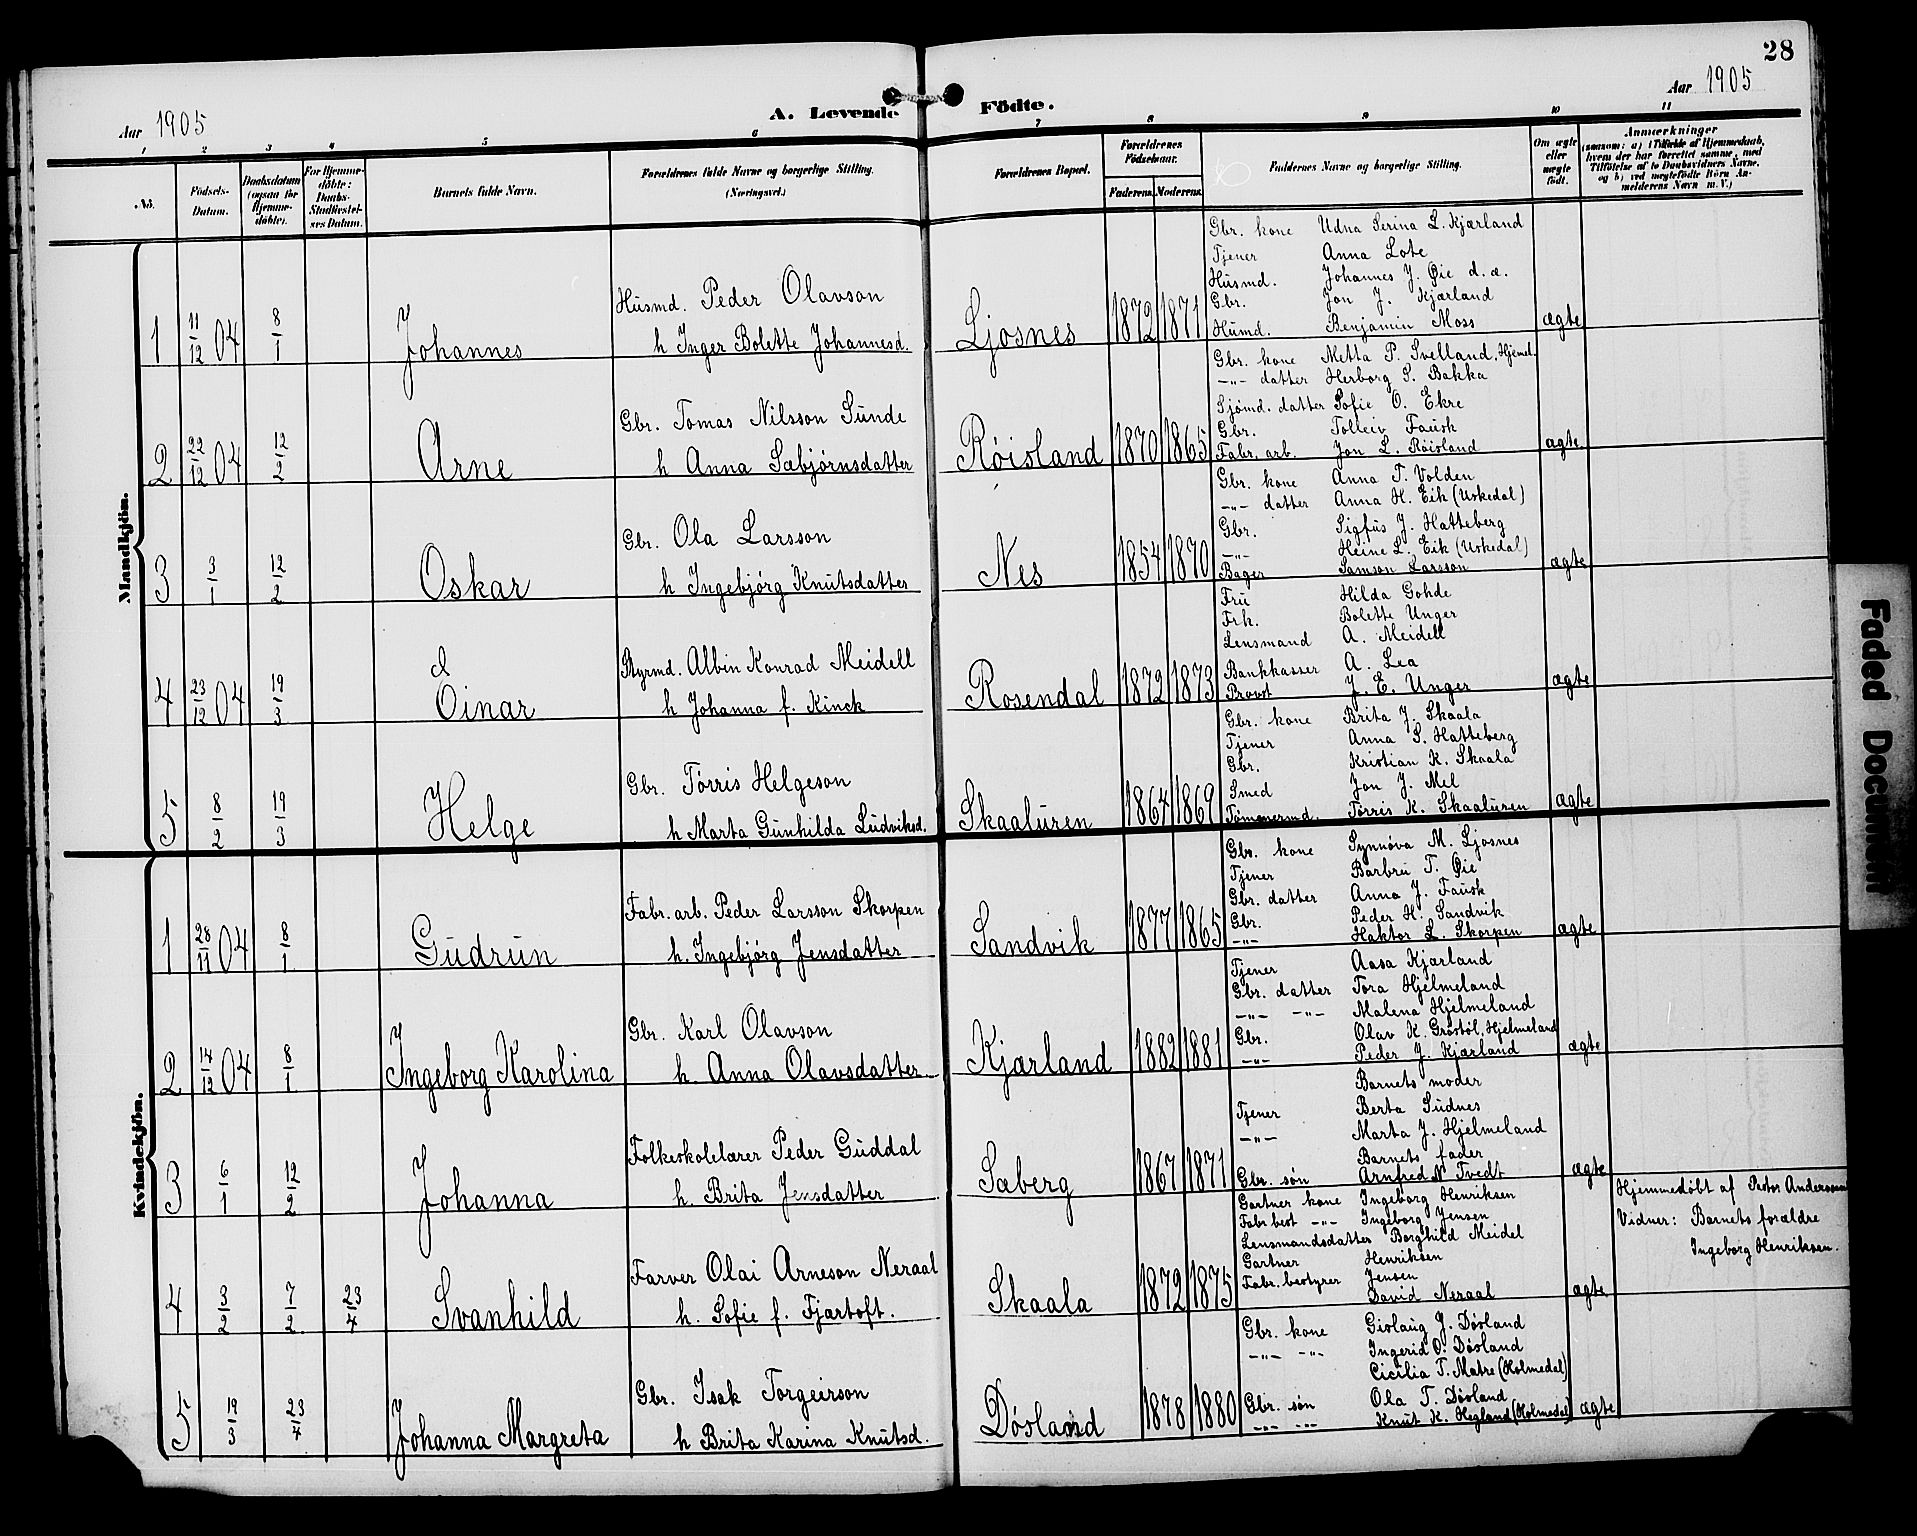 28
Aar 1905
A. Levende Födte.
Aar 1905
1 2 3 4 5 6 7 8 9 10 11
No.
Födsels-Datum.
Daabsdatum (ogsaa for Hjemme-döbte).
For Hjemme-döbte: Daabs-Stadfæstel-ses Datum.
Barnets fulde Navn.
Forældrenes fulde Navne og borgerlige Stilling. (Næringsvei.)
Forældrenes Bopæl.
Forældrenes Födselsaar.
Faderens. Moderens.
Faddernes Navne og borgerlige Stilling.
Om ægte eller uægte födt.
Anmærkninger
(saasom: a) i Tilfælde af Hjemmedaab, hvem der har forrettet samme, med Tilföielse af to Daabsvidners Navne, og b) ved uægtefödte Börn An-melderens Navn m. V.)
Mandkjön.
Gbr. kone Udna Serina L. Kjærland
Tjener Anna Lote
Husmd. Johannes J. Øie d. æ.
Husmd. Peder Olavson
Gbr. Jon J. Kjærland
1 11/12 04 8/1 Johannes h Inger Bolette Johannesd. Ljosnes 1872 1871 Humd. Benjamin Moss ægte
Gbr. kone Metta P. Svelland, Hjemd.
-"- datter Herborg S. Bakka
Gbr. Tomas Nilsson Sunde
Sjømd. datter Sofie O. Ekre
Gbr. Tolleiv Fausk
2 22/12 04 12/2 Arne h Anna Sæbjørnsdatter Røisland 1870 1865 Fabr. arb. Jon L. Røisland ægte
Gbr. kone Anna T. Volden
-"- datter Anna H. Eik (Uskedal)
Gbr. Ola Larsson
Gbr. Sigfus J. Hatteberg
-"- Heine L. Eik (Uskedal)
3 3/1 12/2 Oskar h Ingebjørg Knutsdatter Nes 1854 1870 Bager Samson Larsson ægte
Fru Hilda Gohde
Frk. Bolette Unger
Lensmand A. Meidell
Styrmd. Albin Konrad Meidell
Bankkasser A. Lea
4 23/12 04 19/3 Einar h Johanna f. Kinck Rosendal 1872 1873 Provst J. E. Unger ægte
Gbr. kone Brita J. Skaala
Tjener Anna S. Hatteberg
Gbr. Kristian K. Skaala
Gbr. Tørris Helgeson
Smed Jon J. Mel
5 8/2 19/3 Helge h Marta Gunhilda Ludviksd. Skaaluren 1864 1869 Tømmermd. Tørris K. Skaaluren ægte
Kvindekjön.
Gbr. kone Synnøva M. Ljosnes
Tjener Barbru T. Øie
Gbr. datter Anna J. Fausk
Fabr. arb. Peder Larsson Skorpen
Gbr. Peder H. Sandvik
1 28/11 04 8/1 Gudrun h. Ingebjørg Jensdatter Sandvik 1877 1865 -"- Haktor L. Skorpen ægte
Tjener Aasa Kjærland
Gbr. datter Tora Hjelmeland
-"- -"- Malena Hjelmeland
Gbr. Karl Olavson
Gbr. Olav K. Grøstøl, Hjelmeland
2 14/12 04 8/1 Ingeborg Karolina h. Anna Olavsdatter Kjærland 1882 1881 -"- Peder J. Kjærland ægte
Barnets moder
Tjener Berta Sudnes
-"- Marta J. Hjelmeland
Folkeskolelærer Peder Guddal
Barnets fader
3 6/1 12/2 Johanna h. Brita Jensdatter Sæberg 1867 1871 Gbr. søn Arnfred N Tvedt ægte
Gartner kone Ingeborg Henriksen
Hjemmedøbt af Pastor Anderssen
Fabr best -"- Ingeborg Jensen
Vidner: Barnets forældre
Lensmandsdatter Borghild Meidel
Ingeborg Henriksen.
Farver Olai Arneson Neraal
Gartner Henriksen
Fabr. bestyrer Jensen
4 3/2 7/2 23/4 Svanhild h. Sofie f. Fjærtoft. Skaala 1872 1875 David Neraal ægte
Gbr. kone Gislaug J. Døsland
-"- -"- Ingerid O. Døsland
Cicilia T. Matre (Holmedal)
Gbr. Isak Torgeirson
Gbr. søn Ola T. Døsland
5 19/3 23/4 Johanna Margreta h Brita Karina Knutsd. Døsland 1878 1880 -"- -"- Knut K. Hegland (Holmedal) ægte
Faded Document